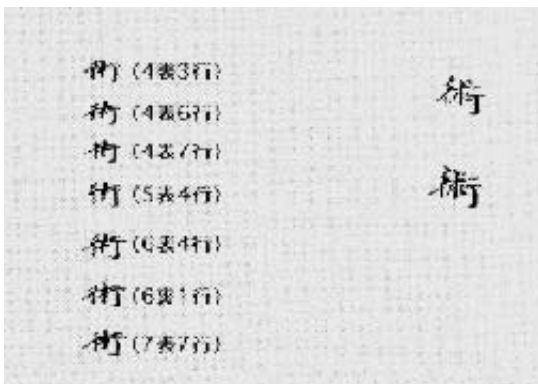 術 (4裏3行)
術 (4裏6行)
術 (4裏7行)
術 (5表4行)
術 (6表4行)
術 (6裏1行)
術 (7表7行)
術
術